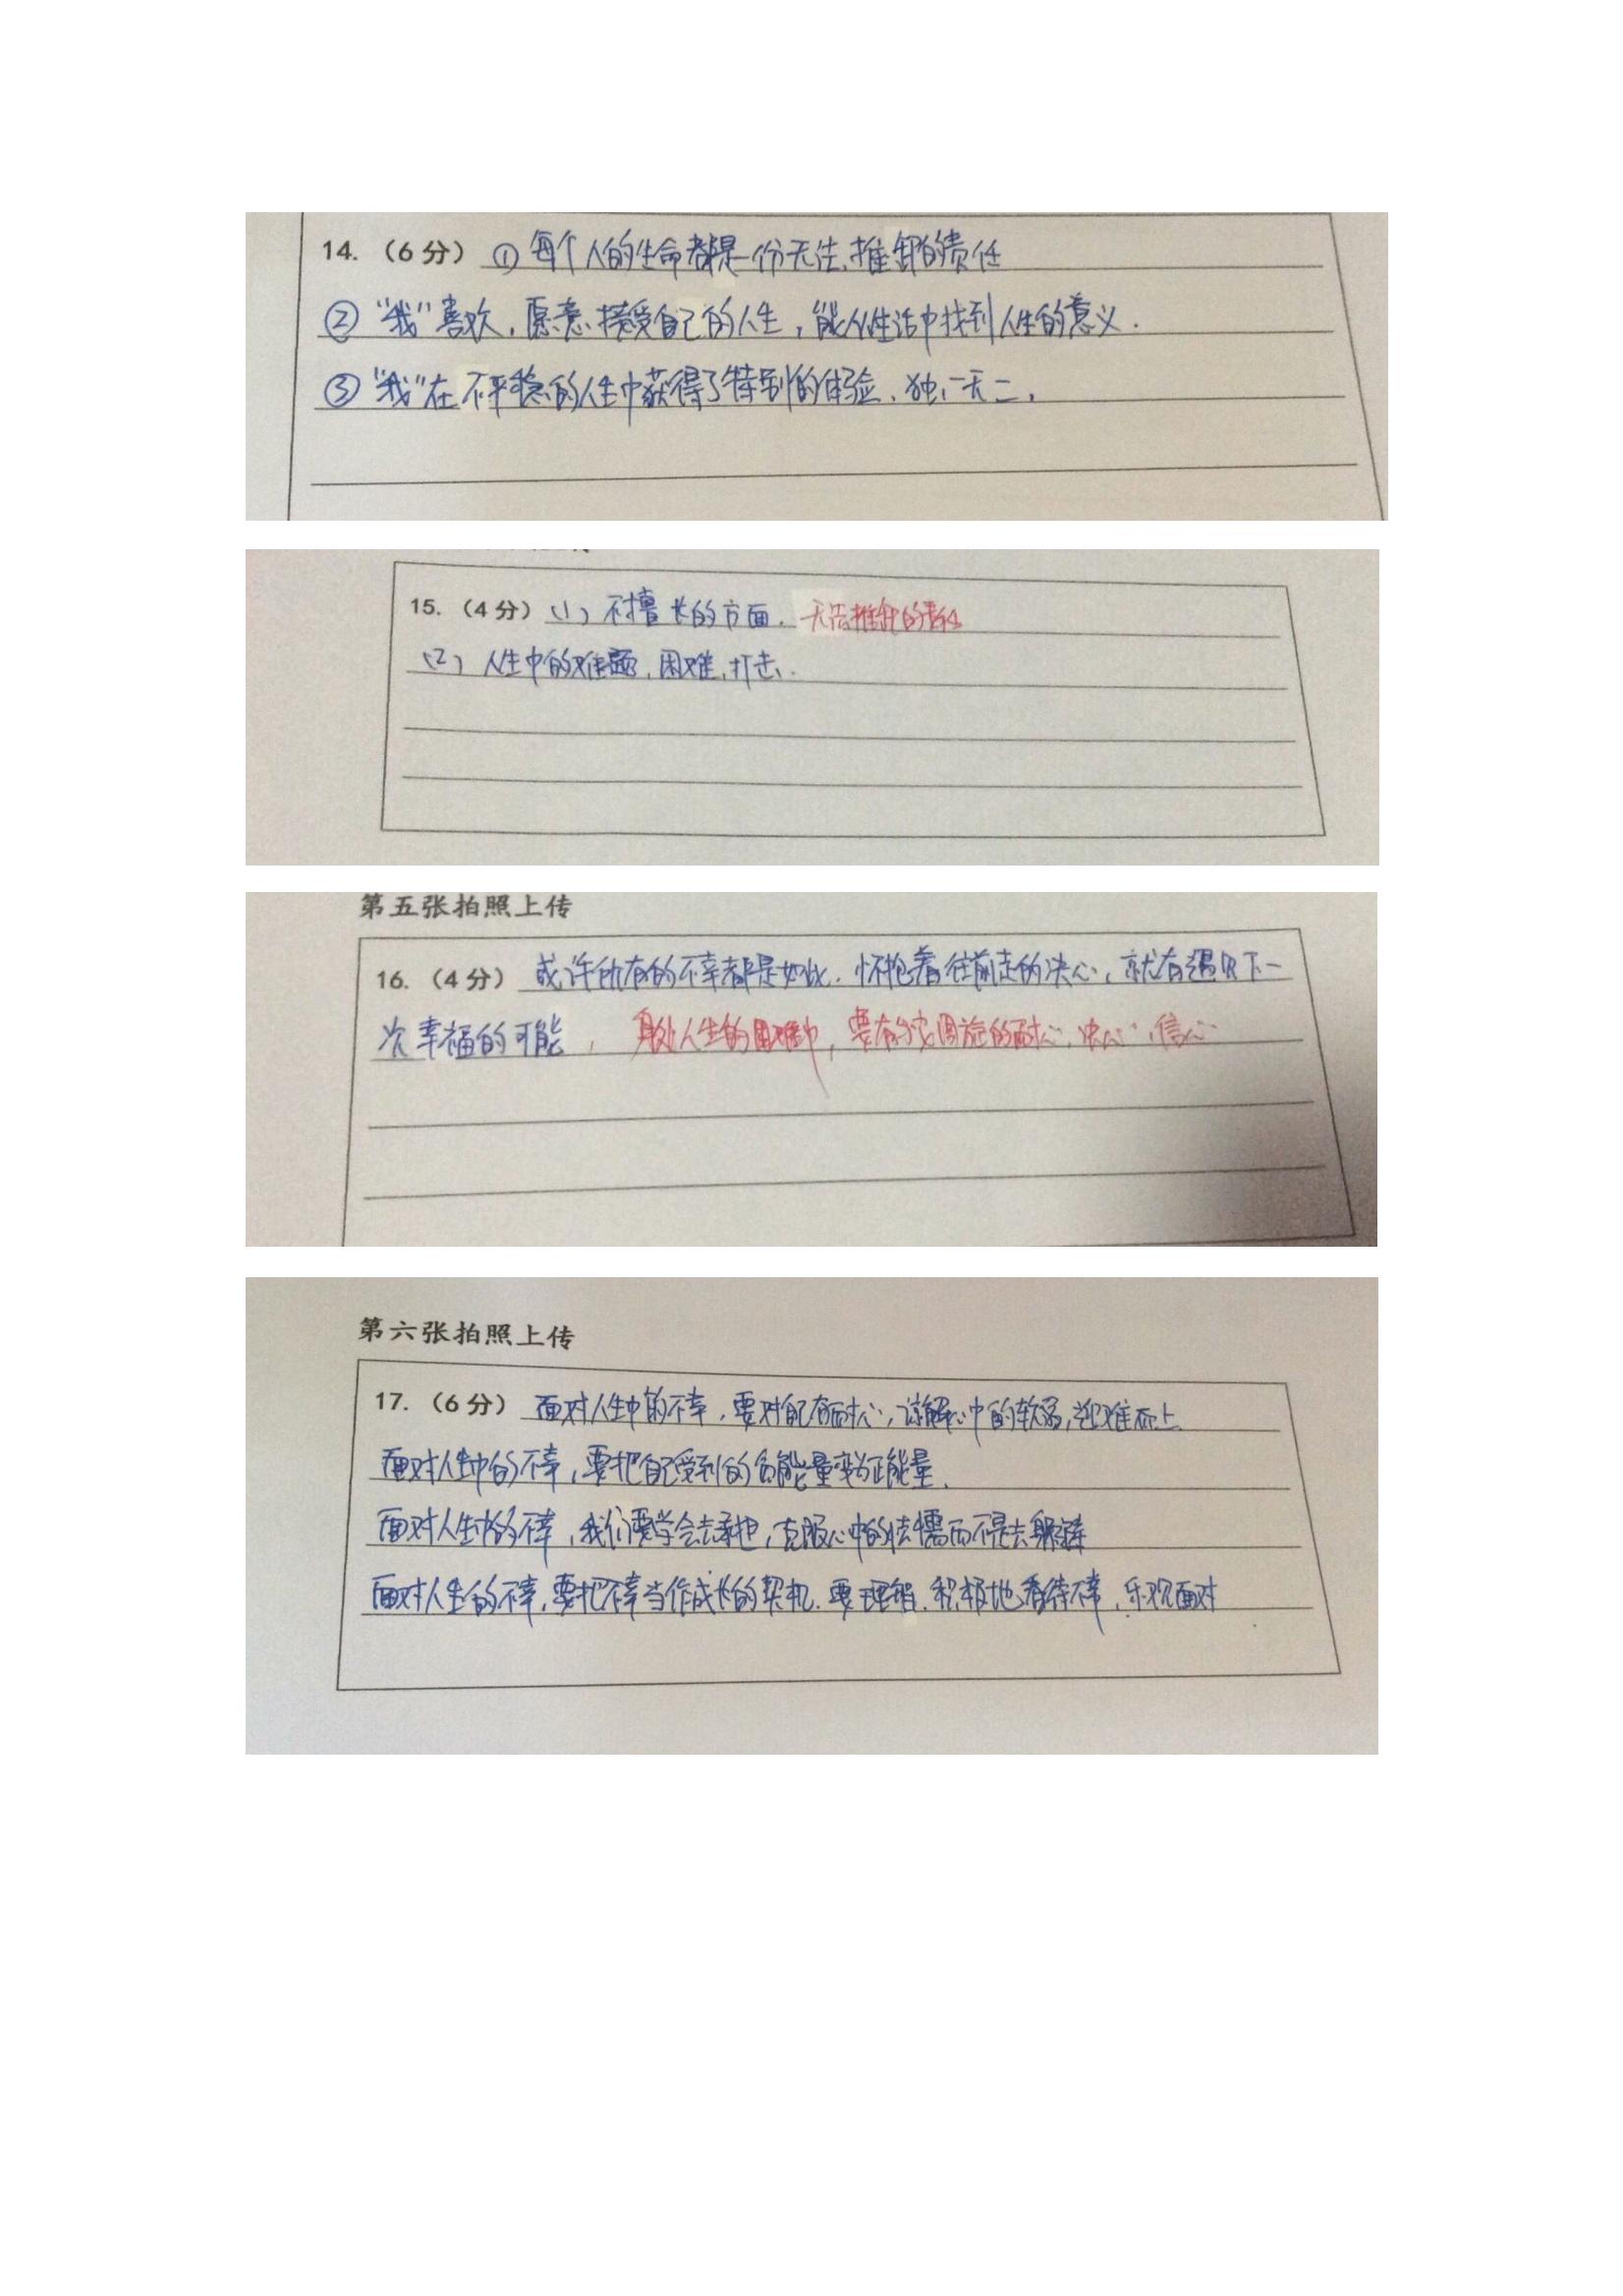 14. （6 分） ① 每个人的生命都是一份无法推卸的责任
② “我”喜欢，愿意接受自己的人生，能从生活中找到人生的意义．
③ “我”在不平稳的人生中获得了特别的体验、独一无二．
15. （4 分） （1）不擅长的方面． 无法推卸的责任
（2）人生中的难题，困难，打击．
第五张拍照上传
16. （4 分） 或许所有的不幸都是如此．怀抱着往前走的决心，就有遇见下一
次幸福的可能， 身处人生的困难中，要有与它周旋的耐心、决心、信心
第六张拍照上传
17. （6 分） 面对人生中的不幸，要对自己有耐心，谅解心中的软弱，迎难而上
面对人生中的不幸，要把自己受到的负能量变为正能量．
面对人生中的不幸，我们要学会去承担，克服心中的怯懦而不是去躲避
面对人生的不幸，要把不幸当作成长的契机．要理智．积极地看待不幸，乐观面对